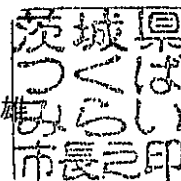 茨城県
つくば
雄
みらい
市長之印